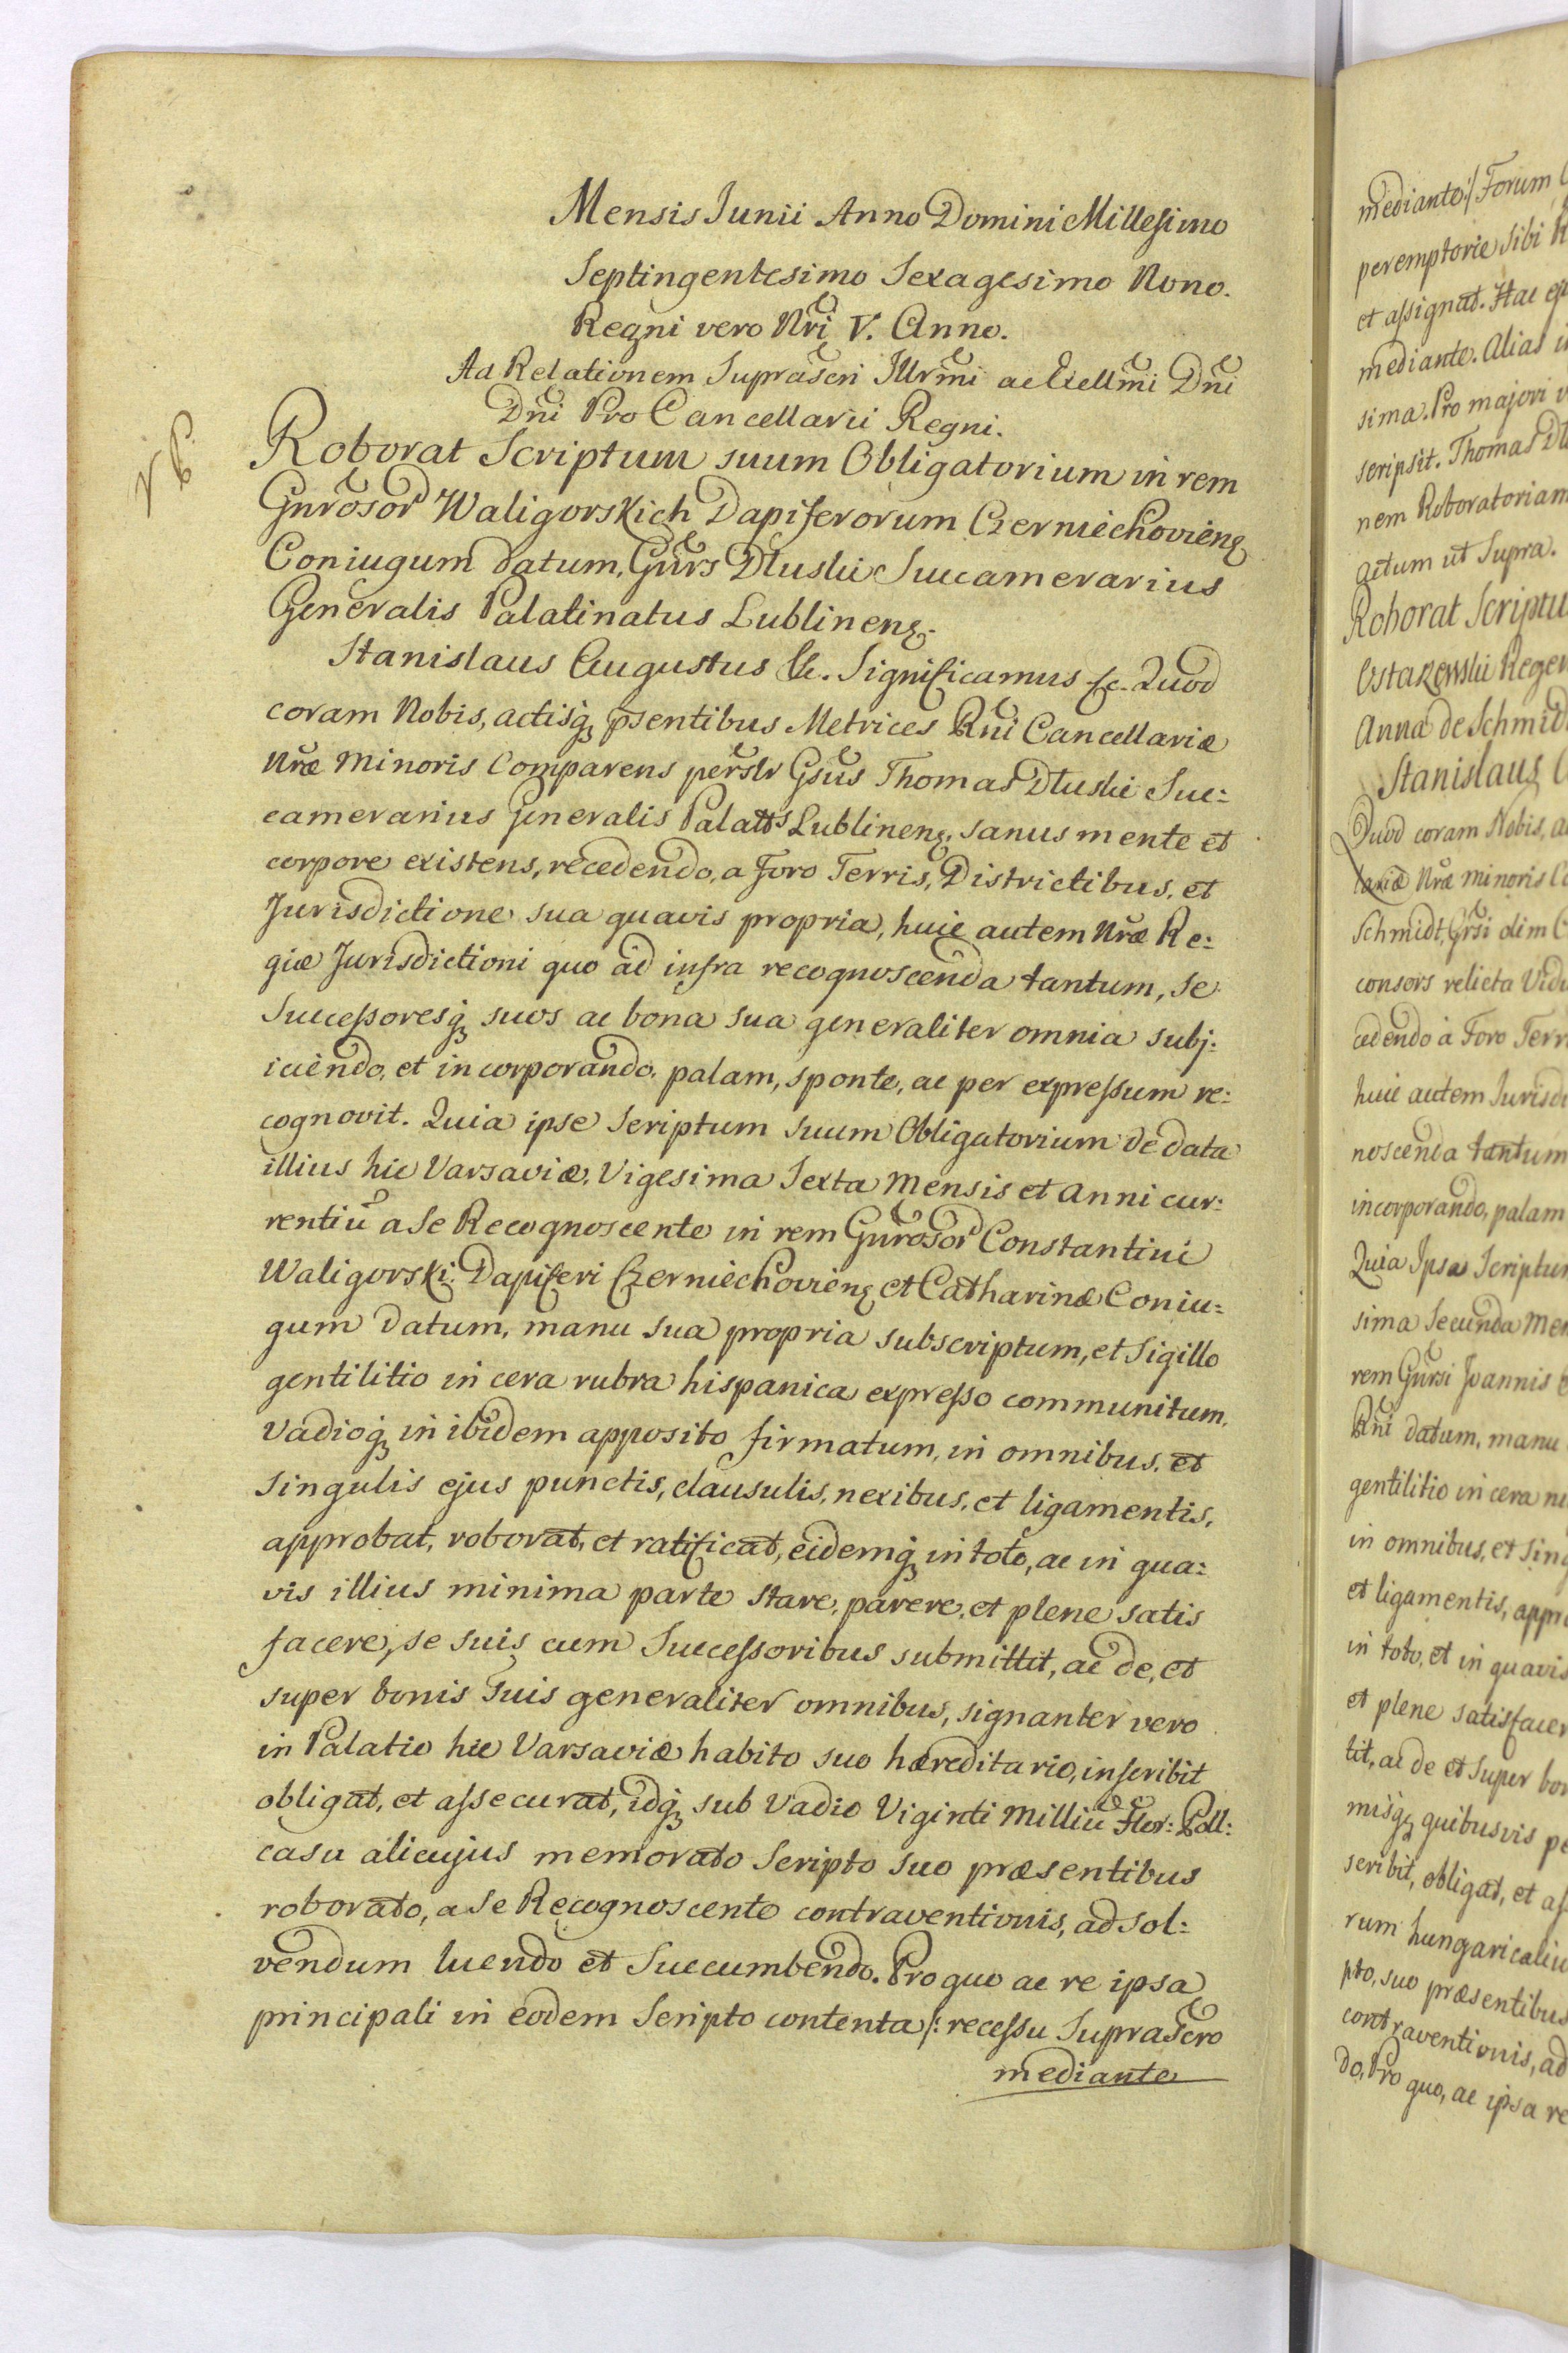 Mensis Junii Anno Domini Millesimo
Septingentesimo Sexagesimo Nono.
Regni vero Nri V. Anno.
Ad Relationem Suprascri Illrmi ac Exellmi Dni
Dni Pro Cancellarii Regni.
Roborat Scriptum suum Obligatorium in rem
Gnrosor Waligorskich Dapiferorum Czerniechovieng
Coniugum datum, Gnrs Dluski Succamerarius
Generalis Palatinatus Lublineng.
Stanislaus Augustus &c. Significamus &c. Quod
coram Nobis, actisq psentibus Metrices Rni Cancellariæ
Nræ Minoris Comparens perslr Gsus Thomas Dluski Suc:
camerarius Generalis Palatts Lublineng, sanus mente et
corpore existens, recedendo, a Foro Terris, Districtibus, et
Jurisdictione sua quavis propria, huic autem Nræ Re:
giæ Jurisdictioni quo ad infra recognoscenda tantum, se
Successoresq suos ac bona sua generaliter omnia subj:
iciendo, et incorporando, palam, sponte, ac per expressum re:
cognovit. Quia ipse Scriptum suum Obligatorium de data
illius hic Varsaviæ, Vigesima Sexta Mensis et Anni cur:
rentiu a Se Recognoscente in rem Gnrosor Constantini
Waligorski Dapiferi Czerniechovieng et Catharinæ Coniu:
gum datum, manu sua propria subscriptum, et Sigillo
gentilitio in cera rubra hispanica expresso communitum,
Vadioq in ibidem apposito firmatum, in omnibus, et
singulis ejus punctis, clausulis, nexibus, et ligamentis,
approbat, roborat, et ratificat, eidemq in toto, ac in qua:
vis illius minima parte stare, parere, et plene satis
facere, se suis cum Successoribus submittit, ac de, et
super bonis suis generaliter omnibus, signanter vero
in Palatio hic Varsaviæ habito suo hæreditario, inscribit
obligat, et assecurat, idq sub Vadio Viginti Milliu Flor: Poll:
casu alicujus memorato Scripto suo præsentibus
roborato, a se Recognoscente contraventionis, ad sol:
vendum luendo et Succumbendo. Pro quo ac re ipsa
principali in eodem Scripto contenta /: recessu Suprascro
mediante
mediante :/ Forum
peremptorie sibi
et assignat. Hac
mediante. Alias
sima. Pro majori
scripsit. Thomas
nem Roboratoriam
actum ut Supra.
Roborat Scriptu
Ostakowski Regen
Anna de Schmid
Stanislaus
Quod coram Nobis,
lariæ Nræ minoris
Schmidt, Grsi olim
consors relicta Vid
cedendo a Foro Terr
huic autem Jurisdi
noscenda tantum
incorporando, palam
Quia Ipsa Scriptu
sima Secunda Men
rem Gnrsi Joannis
Rni datum, manu
gentilitio in cera
in omnibus, et Sing
et ligamentis, appr
in toto, et in quavis
et plene satisfacer
tit, ac de et super bon
misq quibusvis
scribit, obligat, et as
rum hungaricaliu
pto, suo præsentibus
contraventionis, ad
do, Pro quo, ac ipsa re